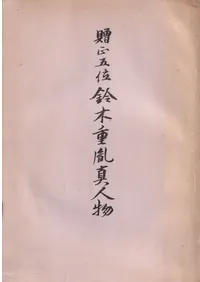 贈正五位鈴木重胤真人物